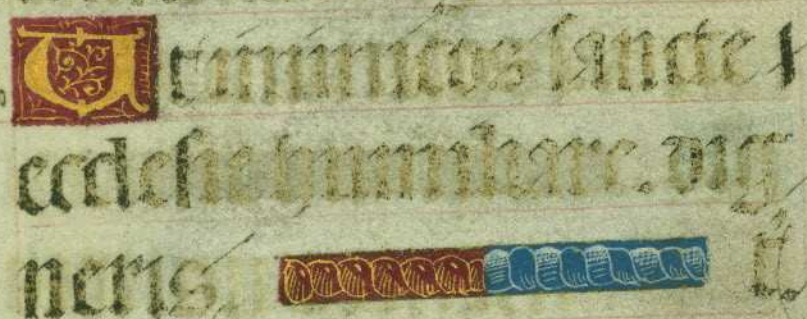 Ut inimicos sancte
ecclesie humiliare. dig
neris